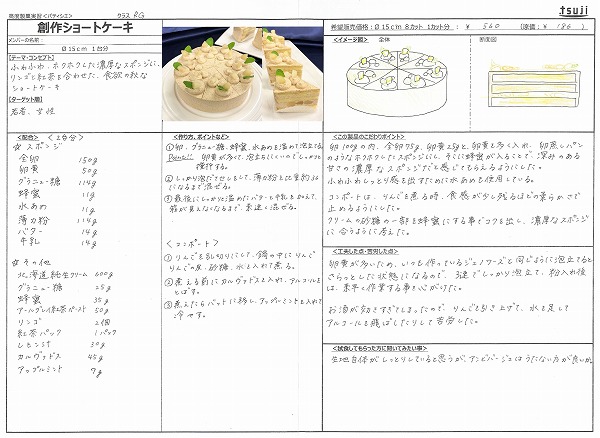 高度製菓実習<パティシエ> クラス RG
創作ショートケーキ
メンバーの名前:
Ø15cm 1台分
【テーマ・コンセプト】
ふわふわ、ホクホクした濃厚なスポンジに、
リンゴと紅茶を合わせた、食欲の秋な
ショートケーキ
【ターゲット層】
若者、女性
希望販売価格:Ø15cm 8カット 1カット分: ¥ 560 (原価: ¥ 186 )
tsuji
<イメージ図> 全体 断面図
<配合> (2台分)
☆スポンジ
全卵 150g
卵黄 50g
グラニュー糖 114g
蜂蜜 11g
水あめ 11g
薄力粉 114g
バター 14g
牛乳 14g
☆その他
北海道純生クリーム 600g
グラニュー糖 25g
蜂蜜 35g
アールグレイ紅茶ペースト 50g
リンゴ 2個
紅茶パック 1パック
レモン汁 30g
カルヴァドス 45g
アップルミント 7g
<作り方、ポイントなど>
①卵、グラニュー糖、蜂蜜、水あめを温めて泡立てる。
Point!! 卵黄が多くて、泡立ちにくいのでしっかりと
撹拌する。
②しっかり泡だてせしをして、薄力粉と
になるまで混ぜる。
③最後にしっかりと温めたバターと牛乳を加えて、
筋が見えなくなるまで、素速く混ぜる。
<コンポート>
①りんごを乱切りにして、鍋の中にりんご
りんごの皮、砂糖、水と入れて煮る。
②煮える前にカルヴァドスを入れ、アルコールを
とばす。
③煮えたらバットに移し、アップルミントを入れて
冷やす。
<この製品のこだわりポイント>
卵100gの内、全卵75g、卵黄25gと、卵黄を多く入れ、卵蒸しパン
のようなホクホクしたスポンジにし、そこに蜂蜜が入ることで、深みのある
甘さの濃厚なスポンジだと感じてもらえるようにした。
ふわふわしっとり感を出すために水あめも使用している。
コンポートは、りんごを煮る時、食感が少し残るほどの柔らかさで
止めるようにした。
クリームの砂糖の一部を蜂蜜にする事でコクを出し、濃厚なスポンジ
に合うように考えた。
<工夫した点・苦労した点>
卵黄が多いため、いつも作っているジェノワーズと同じように泡立てると
ざらっとした状態になるので、3速でしっかり泡立て、粉入れ後
は、素早く作業する事を心がけた。
お酒が効きすぎてしまったので、りんごを引き上げて、水を足して
アルコールを飛ばしたりして苦労した。
<試食してもらった方に聞いてみたい事>
生地自体がしっとりしていると思うが、アンビバージュはうたない方が良いか。